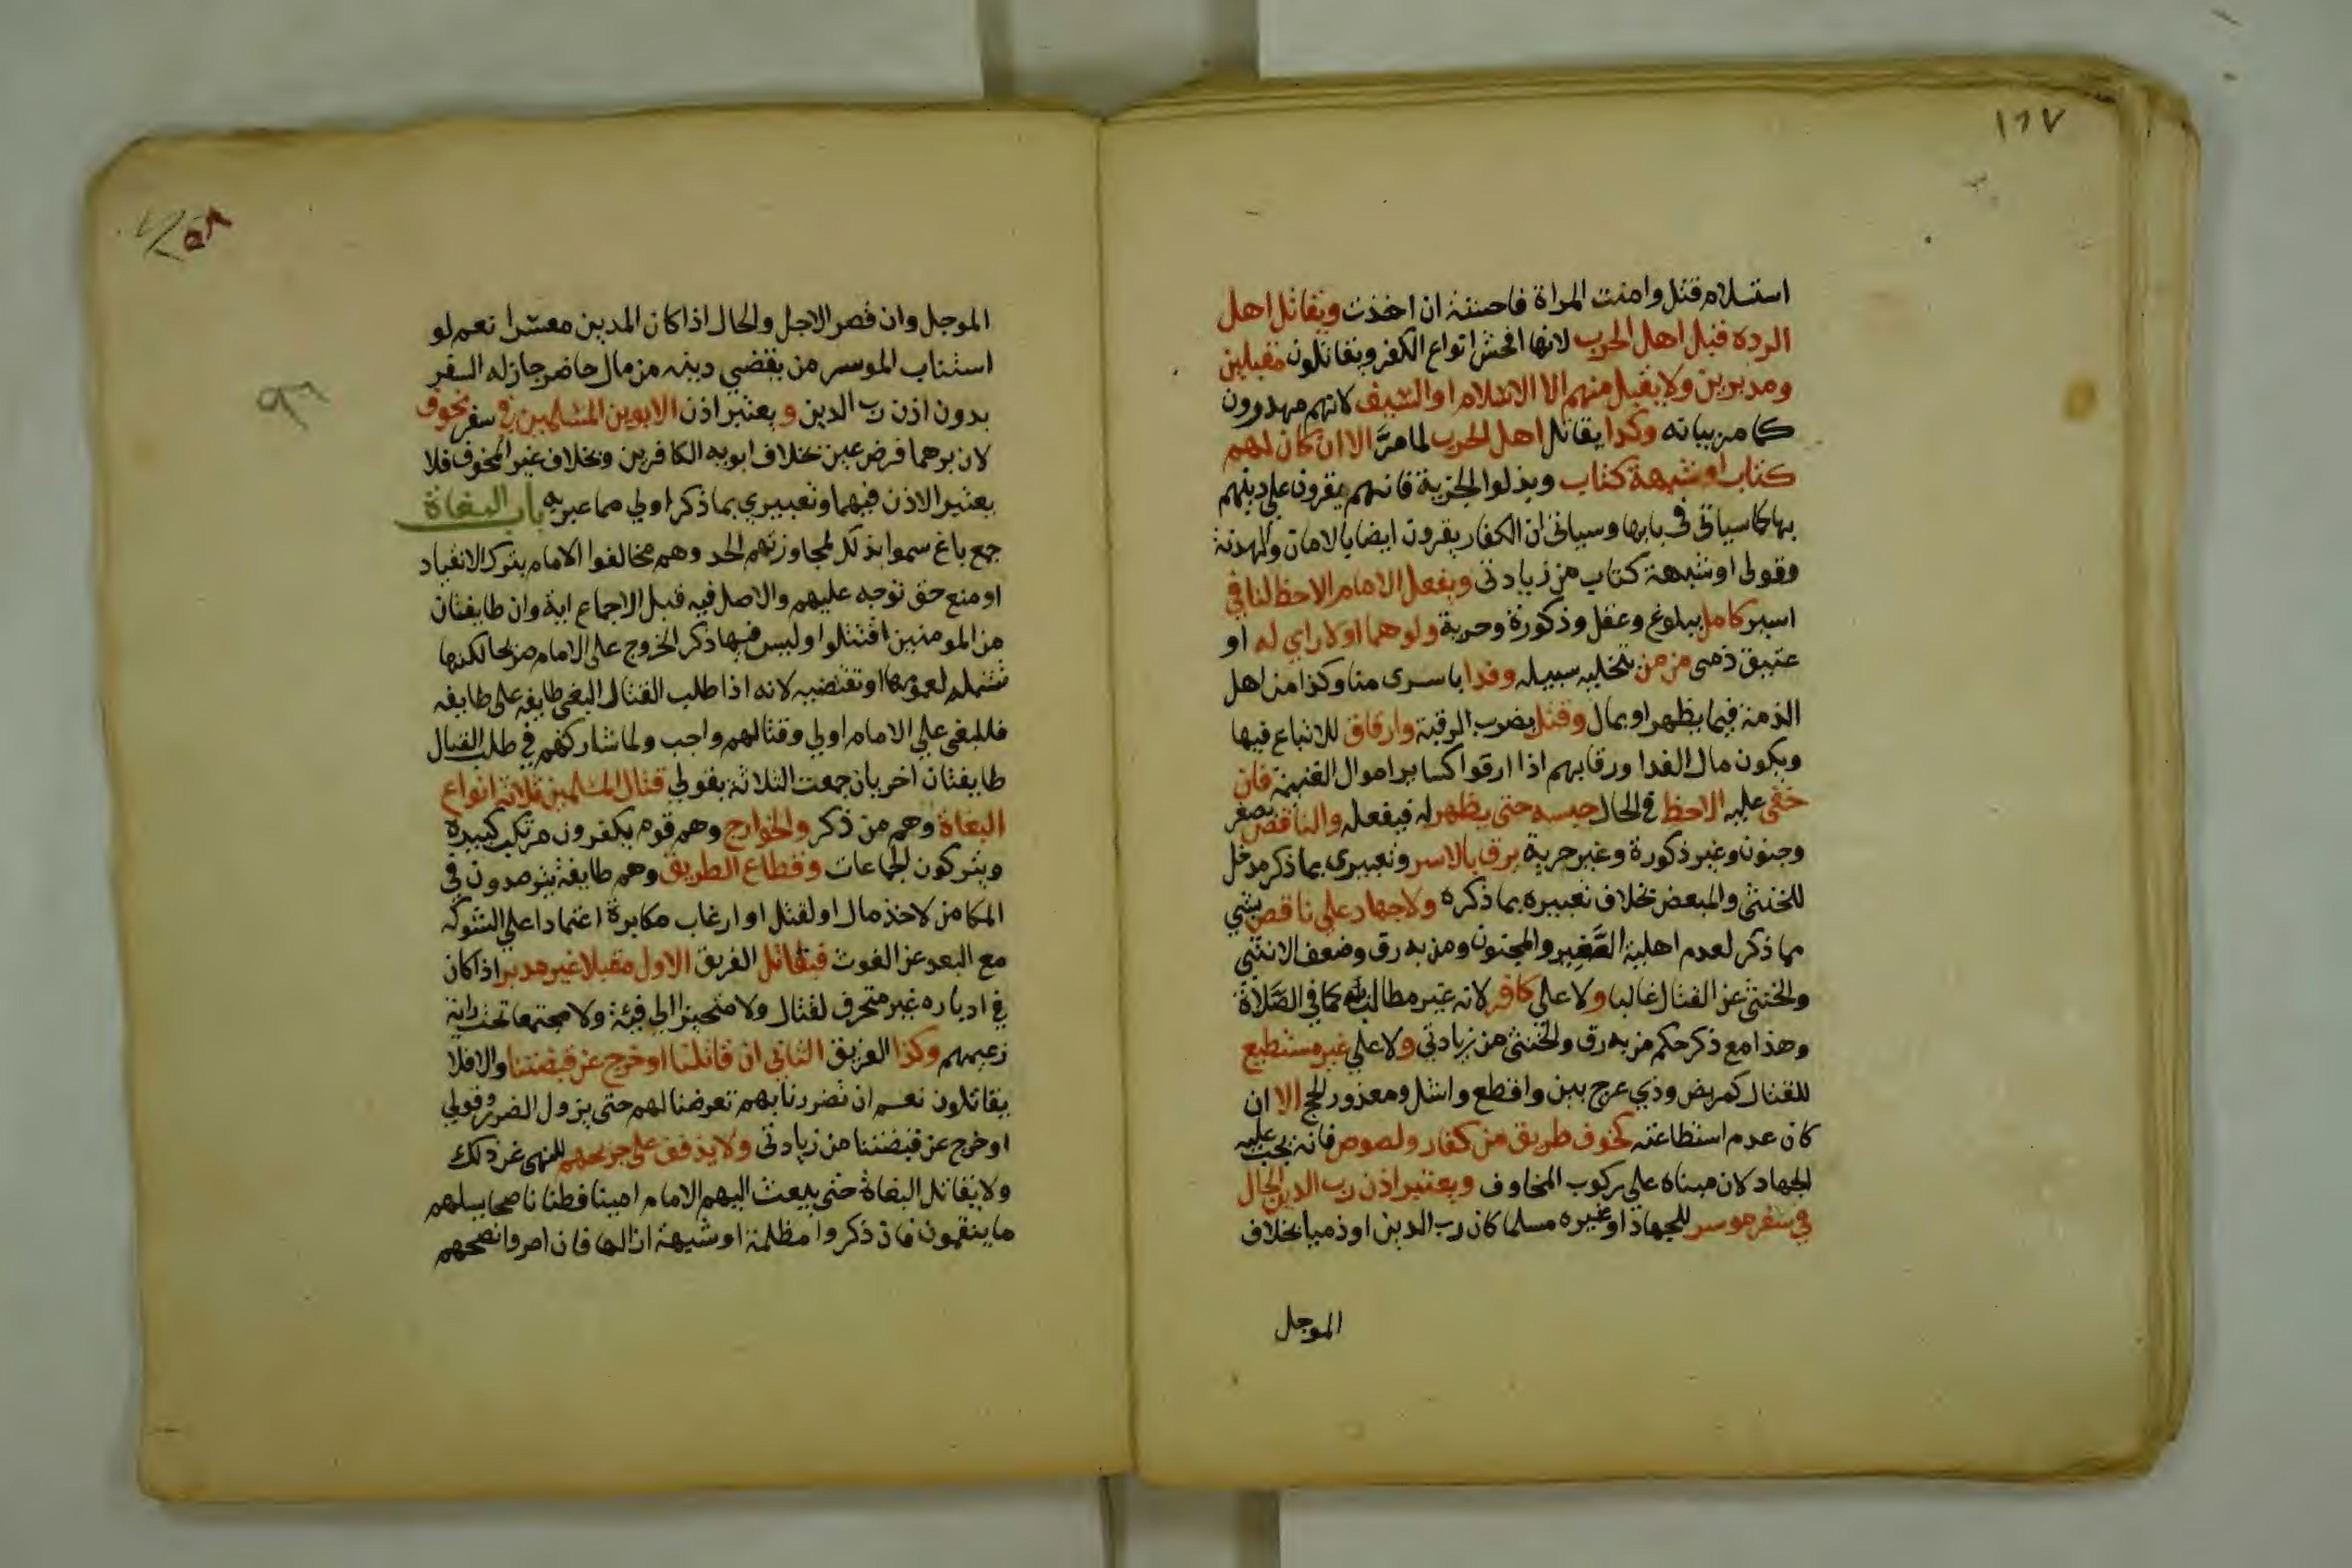 ١٦٧
استسلام قتل وامنت المراة فاحسنت ان اخذت ويقاتل اهل
الردة قبل اهل الحرب لانها افحش انواع الكفر ويقاتلون مقبلين
ومدبرين ولا يقبل منهم الا الاسلام او السيف لانهم مهدورون
كما مر بيانه وكذا يقاتل اهل الحرب لما مرَّ الا ان كان لهم
كتاب او شبهة كتاب وبذلوا الجزية فانهم يقرون على دينهم
بها كما سياتي في بابها وسياتي ان الكفار يقرون ايضا بالامان والهدنة
وقولي او شبهة كتاب من زيادتي ويفعل الامام الاحظ لنا في
اسير كامل ببلوغ وعقل وذكورة وحرية ولو هما او لا راي له او
عتيق ذمي من من بتخلية سبيله وفدا باسرى منا وكذا من اهل
الذمة فيما يظهر او بمال وقتل بضرب الرقبة وارقاق للاتباع فيها
ويكون مال الفدا ورقابهم اذا ارقوا كساير اموال الغنيمة فان
خفي عليه الاحظ في الحال حبسه حتى يظهر له فيفعله والناقص بصغر
وجنون وغير ذكورة وغير حرية يرق بالاسر وتعبيري بما ذكر مدخل
للخنثى والمبعض بخلاف تعبيره بما ذكره ولا جهاد علي ناقص بشي
مما ذكر لعدم اهلية الصَّغِير والمجنون ومن به رق وضعف الانثى
والخنثى عن القتال غالبا ولا علي كافر لانه غير مطالب به كما في الصَّلاة
وهذا مع ذكر حكم من به رق والخنثى من زيادتي ولا علي غير مستطيع
للقتال كمريض وذي عرج بين واقطع واشل ومعذور لحج الا ان
كان عدم استطاعته لخوف طريق من كفار ولصوص فانه يجب عليه
الجهاد لان مبناه علي ركوب المخاوف ويعتبر اذن رب الدين الحال
في سفر موسر للجهاد او غيره مسلما كان رب الدين او ذميا بخلاف
الموجل
الموجل وان قصر الاجل والحال اذا كان المدين معسرا نعم لو
استناب الموسر من يقضي دينه من مال حاضر جاز له السفر
بدون اذن رب الدين ويعتبر اذن الابوين المسلمين في سفر مخوف
لان برهما فرض عين بخلاف ابويه الكافرين وبخلاف غير المخوف فلا
يعتبر الاذن فيهما وتعبيري بما ذكر اولي مما عبر به باب البغاة
جمع باغ سموا بذلك لمجاوزتهم الحد وهم مخالفوا الامام بترك الانقياد
او منع حق توجه عليهم والاصل فيه قبل الاجماع اية وان طايفتان
من المومنين اقتتلوا وليس فيها ذكر الخروج على الامام صريحا لكنها
تشمله لعمومها او تقتضيه لانه اذا طلب القتال لبغي طايفة على طايفة
فللبغي علي الامام اولي وقتالهم واجب ولما شاركهم في طلب القتال
طايفتان اخريان جمعت الثلاثة بقولي قتال المسلمين ثلاثة انواع
البغاة وهم من ذكر والخوارج وهم قوم يكفرون مرتكب كبيرة
ويتركون الجماعات وقطاع الطريق وهم طايفة يترصدون في
المكامن لاخذ مال او لقتل او ارعاب مكابرة اعتمادا علي الشوكة
مع البعد عن الغوث فيقاتل الفريق الاول مقبلا غير مدبر اذا كان
في ادباره غير متحرف لقتال ولا متحيزا الي فئة ولا مجتمعا تحت راية
زعيمهم وكذا الفريق الثاني ان قاتلنا او خرج عن قبضتنا والا فلا
يقاتلون نعم ان تضررنا بهم تعرضنا لهم حتى يزول الضرر وقولي
او خرج عن قبضتنا من زيادتي ولا يذفف على جريحهم للنهي عن ذلك
ولا يقاتل البغاة حتى يبعث اليهم الامام امينا فطنا ناصحا يسلهم
ما ينقمون فان ذكروا مظلمة او شبهة ازالها فان اصروا نصحهم